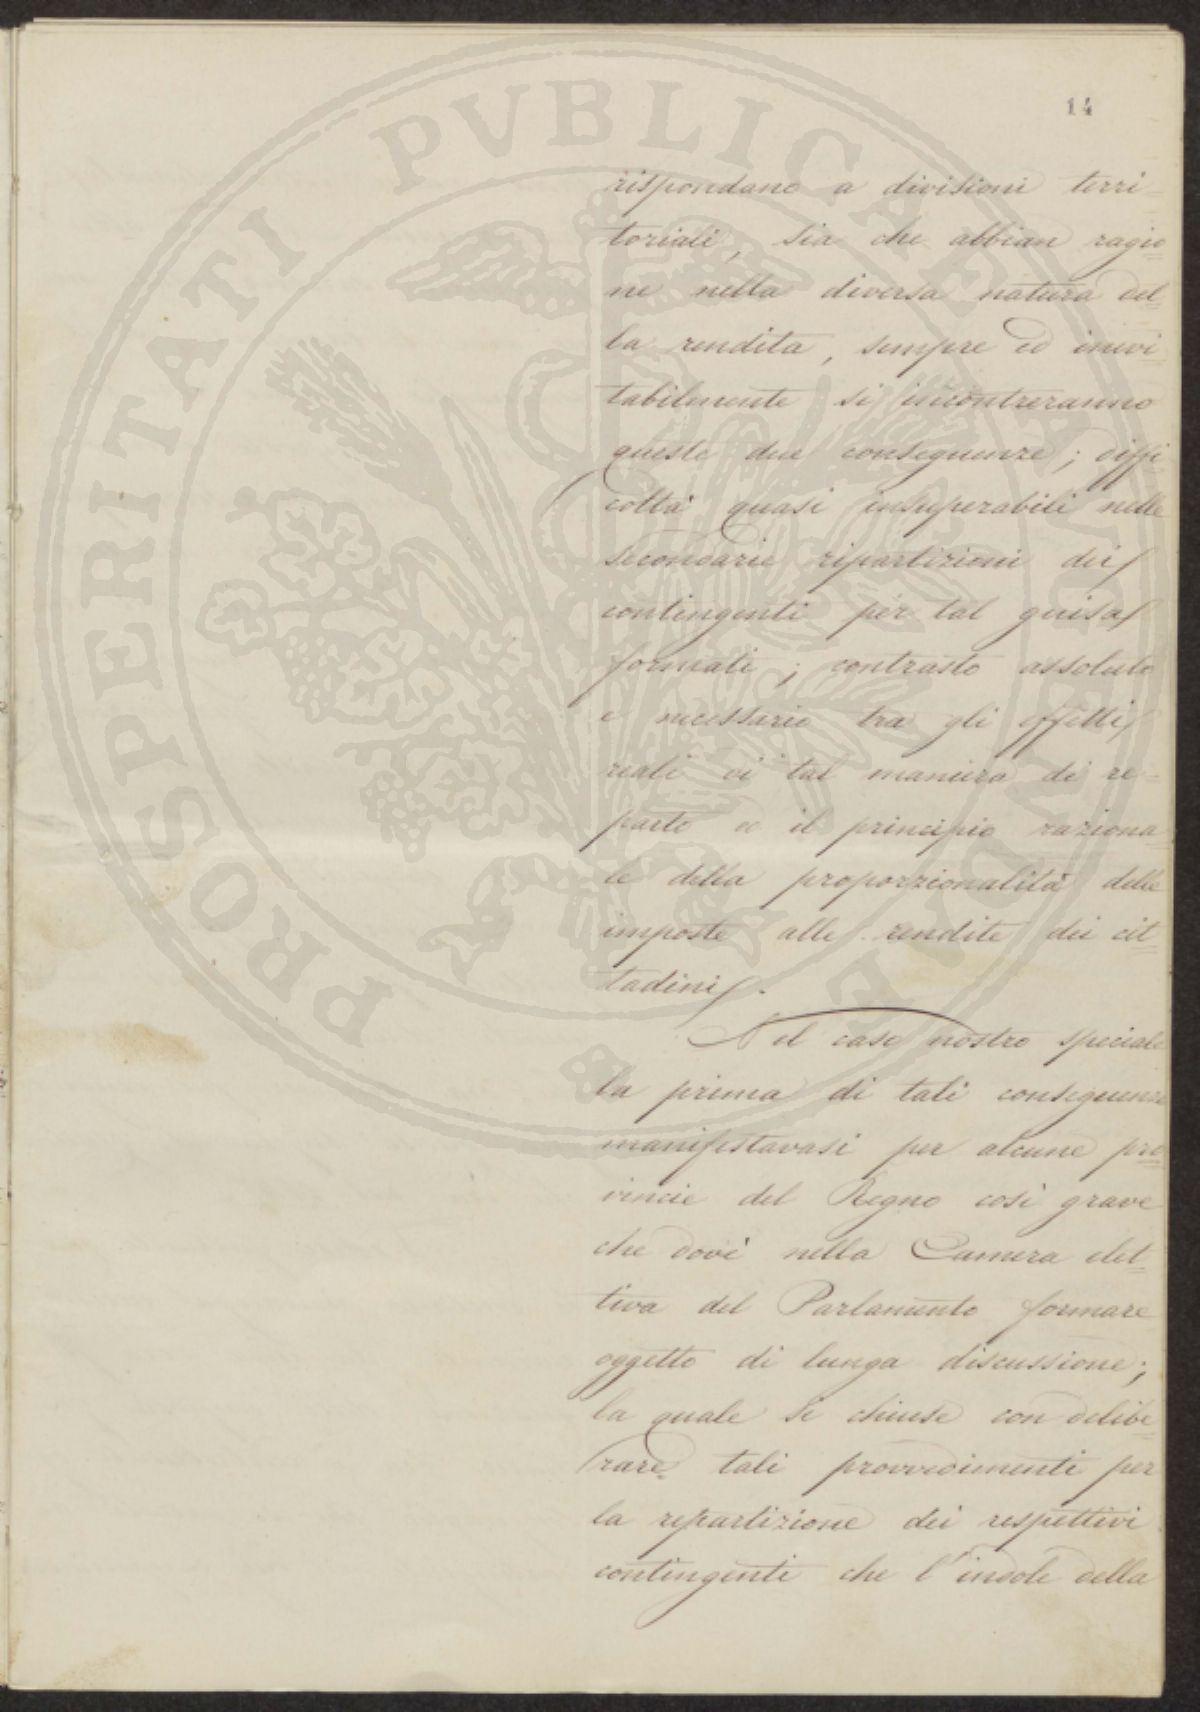 PROSPERITATI PVBLICAE AVGENDAE
14
rispondano a divisioni terri-
toriali, sia che abbian ragio
ne nella diversa natura del
la rendita, sempre ed inevi
tabilmente si incontreranno
queste due conseguenze; diffi
coltà quasi insuperabili nelle
secondarie ripartizioni dei
contingenti per tal guisa
formati; contrasto assoluto
e necessario tra gli effetti
reali di tal maniera di re-
parto ed il principio raziona
le della proporzionalità delle
imposte alle rendite dei cit
tadini.
Nel caso nostro speciale
la prima di tali conseguenze
manifestavasi per alcune pro
vincie del Regno così grave
che dovè nella Camera elet
tiva del Parlamento formare
oggetto di lunga discussione;
la quale si chiuse con delibe
rare tali provvedimenti per
la repartizione dei respettivi
contingenti che l'indole della